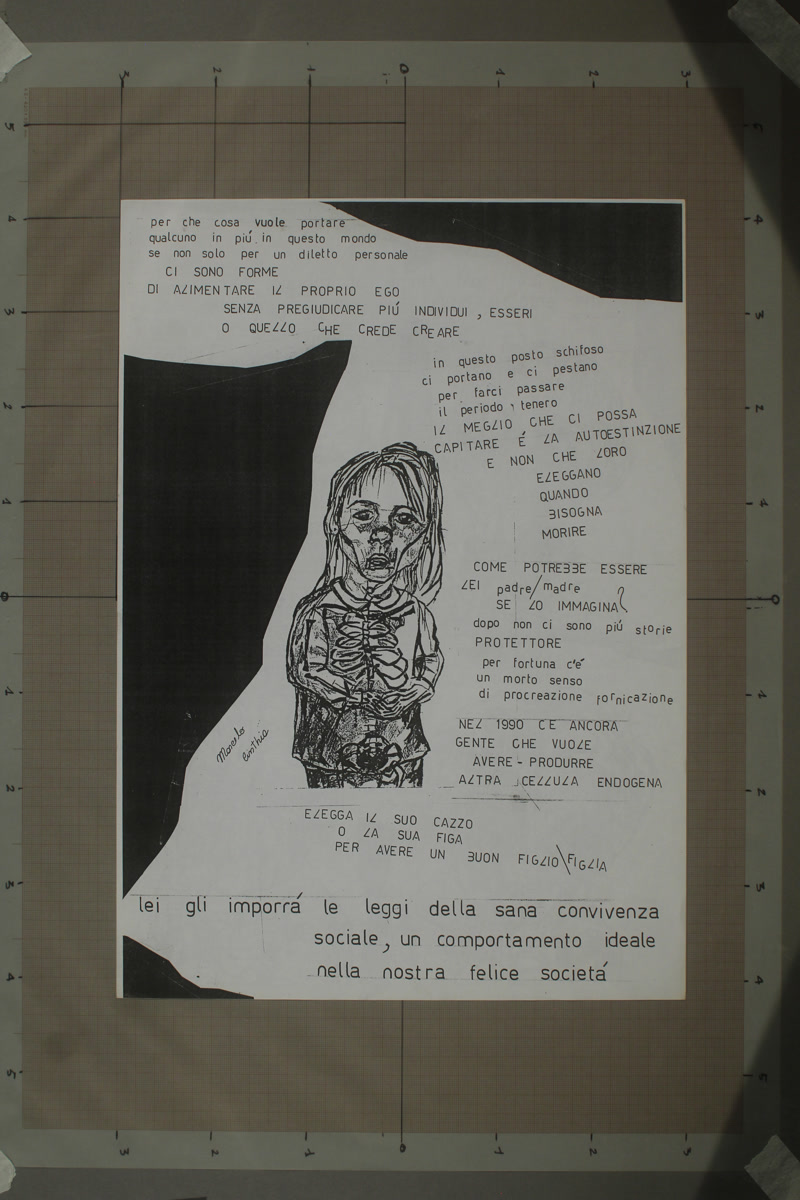 per che cosa vuole portare
qualcuno in piú in questo mondo
se non solo per un diletto personale
CI SONO FORME
DI ALIMENTARE IL PROPRIO EGO
SENZA PREGIUDICARE PIÚ INDIVIDUI, ESSERI
O QUELLO CHE CREDE CREARE
in questo posto schifoso
ci portano e ci pestano
per farci passare
il periodo, tenero
IL MEGLIO CHE CI POSSA
CAPITARE É LA AUTOESTINZIONE
E NON CHE LORO
ELEGGANO
QUANDO
BISOGNA
MORIRE
COME POTREBBE ESSERE
LEI padre/madre
SE LO IMMAGINA?
dopo non ci sono piú storie
PROTETTORE
per fortuna c'é
un morto senso
di procreazione fornicazione
NEL 1990 C'E ANCORA
GENTE CHE VUOLE
AVERE-PRODURRE
ALTRA CELLULA ENDOGENA
Marcelo
Cinthia
ELEGGA IL SUO CAZZO
O LA SUA FIGA
PER AVERE UN BUON FIGLIO\FIGLIA
lei gli imporrá le leggi della sana convivenza
sociale, un comportamento ideale
nella nostra felice societá
3 2 1 0 1 2 3
5 4 3 2 1 0 1 2 3 4 5
4 3 2 1 0 1 2 3 4 5
3 2 1 0 1 2 3